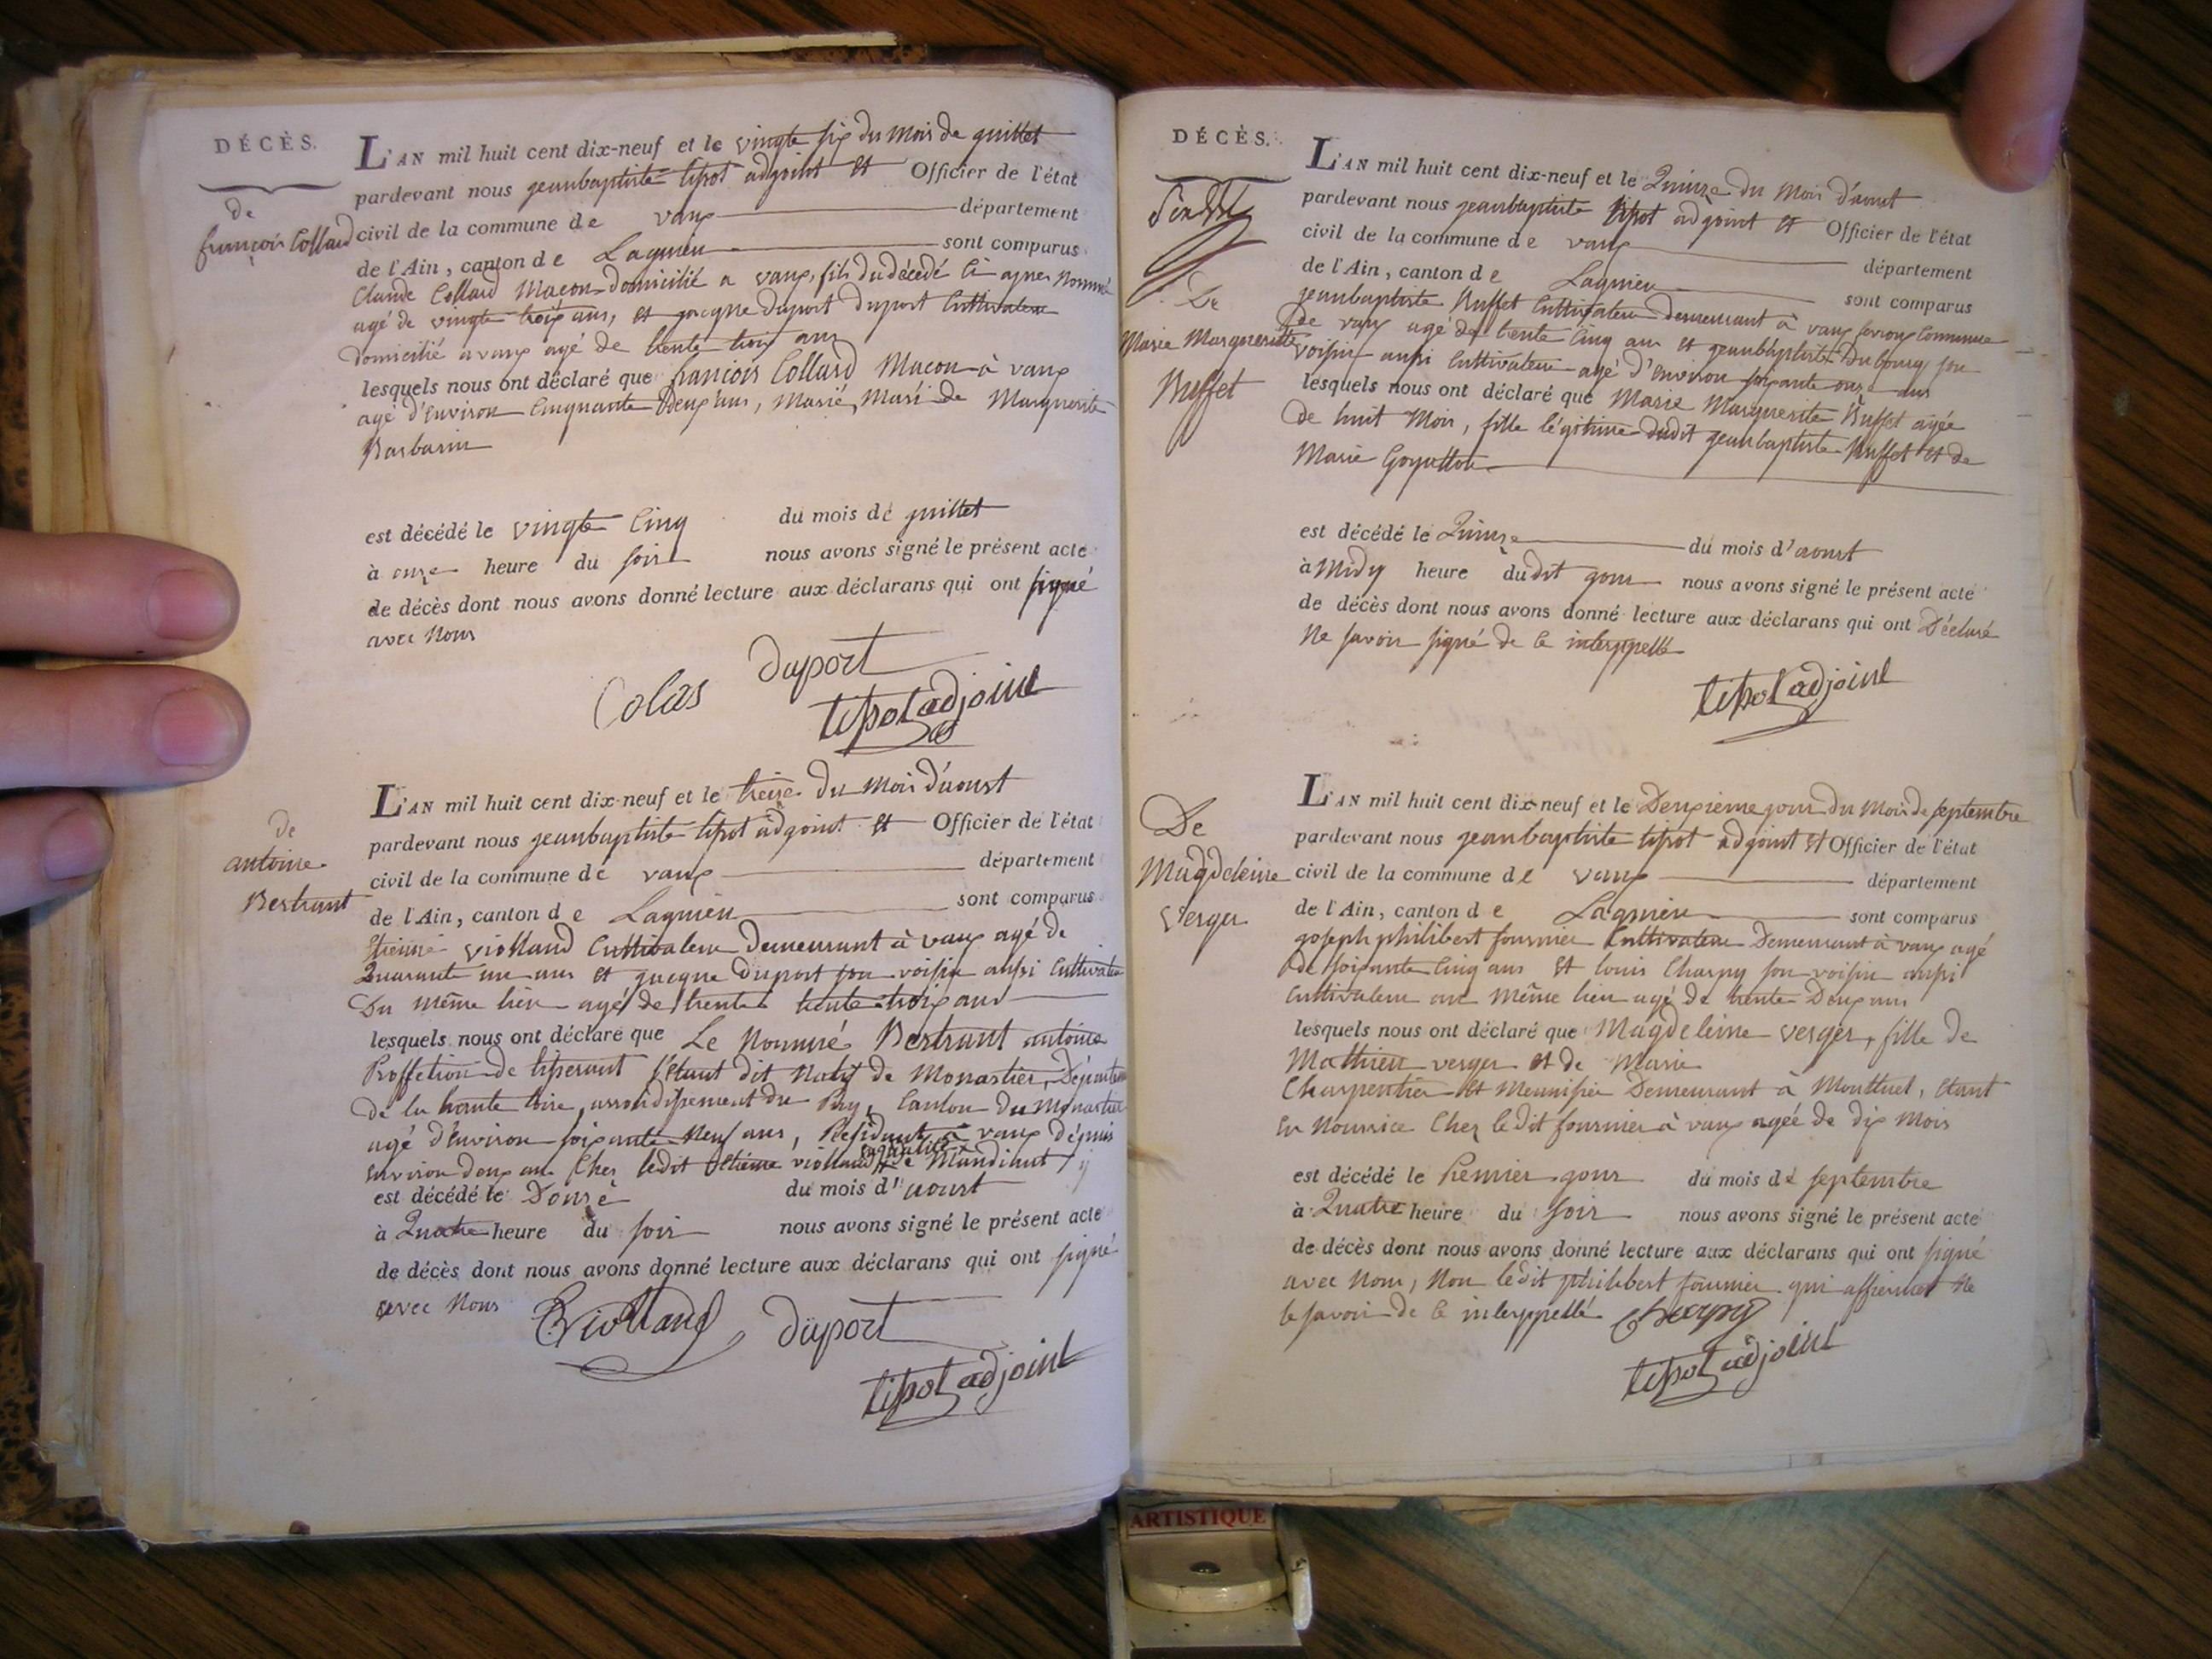 DÉCÈS.
de
françois Collard
L'AN mil huit cent dix-neuf et le vingte six du mois de juillet
pardevant nous jeanbaptiste tissot adjoint et Officier de l'état
civil de la commune de vaux département
de l'Ain, canton de Lagnieu sont comparus
Claude Collard Macon domicilié a vaux, fils du décédé ci apres nommé
agé de vingte trois ans, et jacque Duport duport Cultivateur
domicilié a vaux agé de trente trois ans
lesquels nous ont déclaré que françois Collard Macon à vaux
agé d'environ Cinquante Deux ans, Marié, Mari de Marguerite
Barbarin
est décédé le vingte Cinq du mois de juillet
à onze heure du soir nous avons signé le présent acte
de décès dont nous avons donné lecture aux déclarans qui ont signé
avec Nous
Duport
Colas
tissot adjoint
de
antoine
Bertrant
L'AN mil huit cent dix-neuf et le treize du Mois d'aoust
pardevant nous jeanbaptiste tissot adjoint et Officier de l'état
civil de la commune de vaux département
de l'Ain, canton de Lagnieu sont comparus
Etienne violland Cultivateur Demeurant à vaux agé de
Quarante un ans et jacque duport son voisin aussi Cultivateur
Du même lieu agé de trente trente trois ans
lesquels nous ont déclaré que Le Nommé Bertrant antoine
Proffetion de tisserant s'étant dit Natif de Monastier, Département
de la haute loire, arrondissement du Puy, Canton du Monastier
agé d'environ soixante Neuf ans, Résidant à vaux dépuis
environ deux ans Chez ledit Etienne violland en qualité de Mandiant
est décédé le Douze du mois d'aoust
à Quatre heure du soir nous avons signé le présent acte
de décès dont nous avons donné lecture aux déclarans qui ont signé
avec Nous
violland
duport
tissot adjoint
DÉCÈS.
De
Marie Marguerite
Buffet
L'AN mil huit cent dix-neuf et le Quinze du Mois d'aoust
pardevant nous jeanbaptiste tissot adjoint et Officier de l'état
civil de la commune de vaux département
de l'Ain, canton de Lagnieu sont comparus
jeanbaptiste Buffet Cultivateur demeurant à vaux Commune
de vaux agé de trente Cinq ans et jeanbaptiste Dubourg son
voisin aussi Cultivateur agé d'environ soixante onze ans
lesquels nous ont déclaré que Marie Marguerite Buffet agée
de huit Mois, fille légitime dudit jeanbaptiste Buffet et de
Marie
est décédé le Quinze du mois d'aoust
à Midy heure dudit jour nous avons signé le présent acte
de décès dont nous avons donné lecture aux déclarans qui ont Déclaré
Ne savoir signé de ce interppellé
tissot adjoint
De
Magdeleine
Verger
L'AN mil huit cent dix-neuf et le Deuxieme jour du Mois de septembre
pardevant nous jeanbaptiste tissot adjoint et Officier de l'état
civil de la commune de vaux département
de l'Ain, canton de Lagnieu sont comparus
joseph philibert fournier Cultivateur Demeurant à vaux agé
de soixante Cinq ans et louis Charpy son voisin aussi
Cultivateur au même lieu agé de trente Deux ans
lesquels nous ont déclaré que Magdeleine verger, fille de
Mathieu verger et de Marie
Charpentier et Menuisier Demeurant à Montluel, étant
en Nourrice Chez ledit fournier à vaux agée de dix Mois
est décédé le Premier jour du mois de septembre
à Quatre heure du soir nous avons signé le présent acte
de décès dont nous avons donné lecture aux déclarans qui ont signé
avec Nous, Non ledit philibert fournier qui affirmer Ne
le savoir de ce interppellé
Charpy
tissot adjoint
ARTISTIQUE